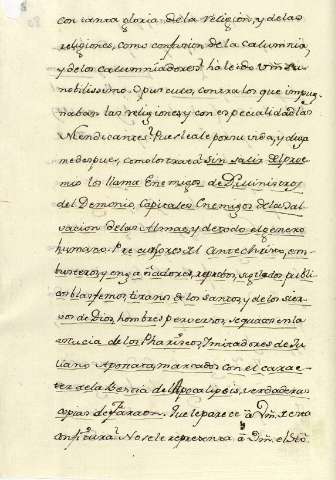 con tanta gloria de la religion, y de las
religiones, como confusion de la calumnia,
y de los calumniadores? ha leido Vm. su
nobilissimo Opusculo, contra los que impug
naban las religiones, y con especialidad las
Mendicantes? Pues leale por su vida, y diga
me despues, como los trata? Sin salir del proe
mio los llama Enemigos de Dios, Ministros
del Demonio, Capitales Enemigos de la Sal
vacion de las Almas, y de todo el genero
humano. Precursores del Antechristo, em
busteros, y engañadores, publi
cos blasfemos, tiranos de los santos, y de los sier
vos de Dios, hombres perversos, seguaces en la
astucia de los Phariseos, Imitadores de Ju
liano Apostata, marcados con el carac
ter de la Bestia del Apocalipsis, verdaderas
copias de Faraon. Que le parece à Vm. de esta
No se le representa à Vm. el